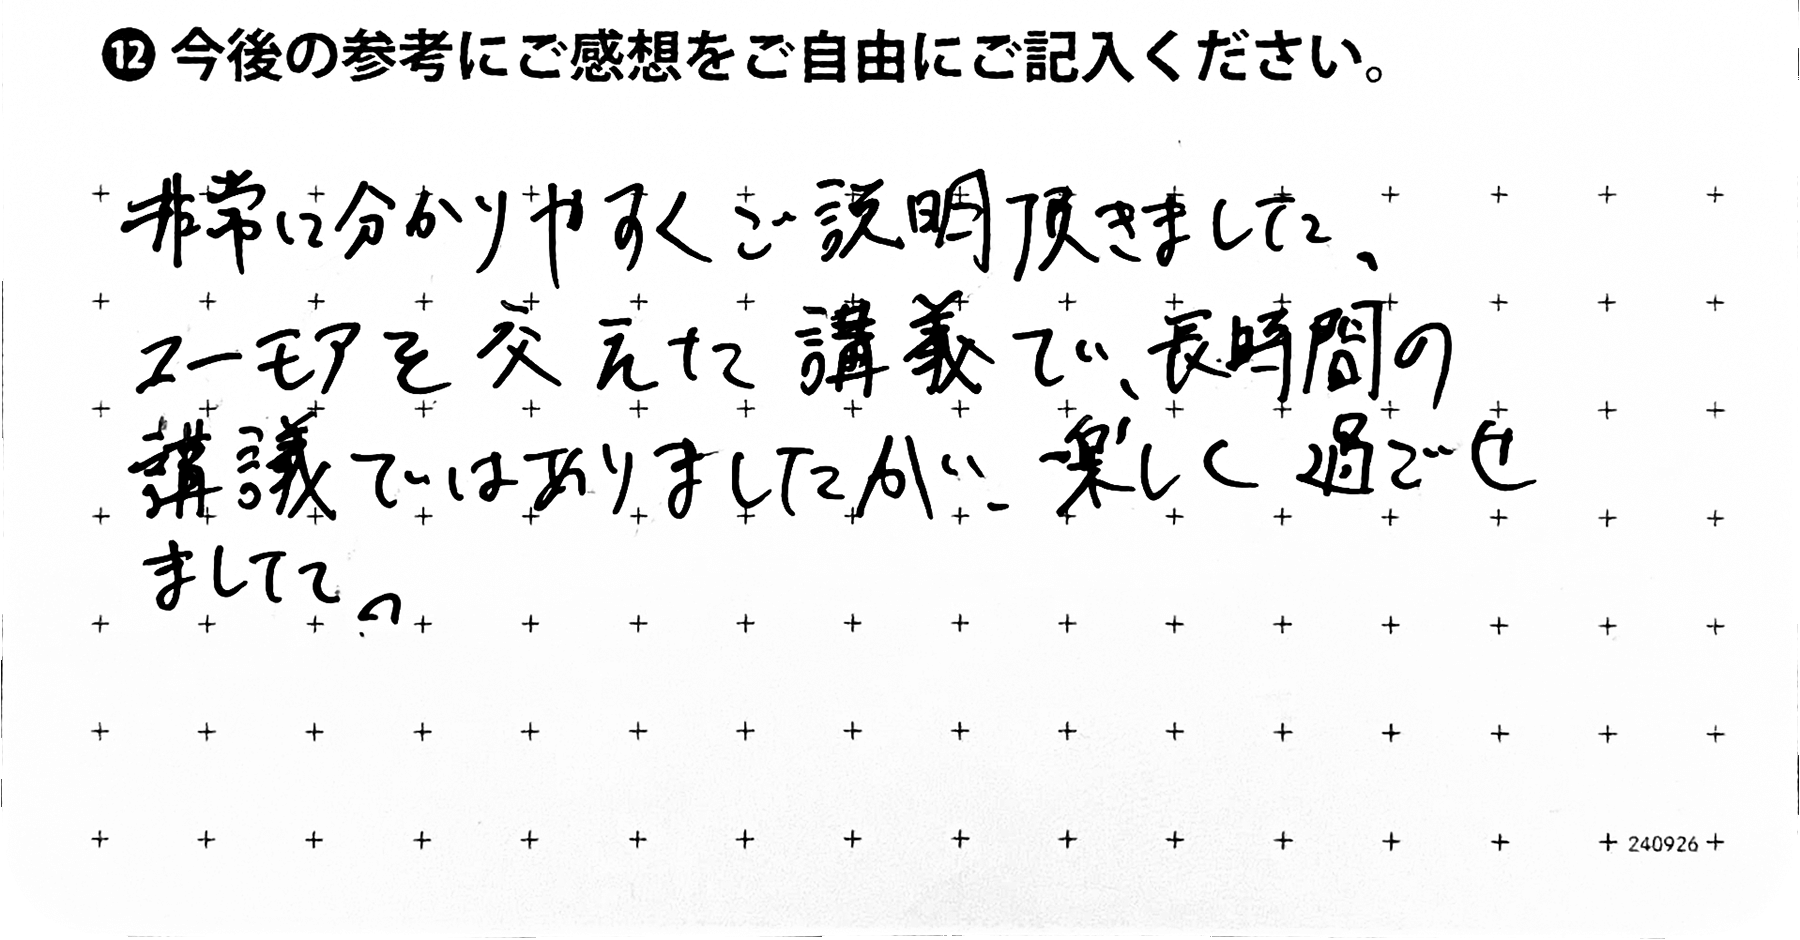 ⓬ 今後の参考にご感想をご自由にご記入ください。
非常に分かりやすくご説明頂きました、
ユーモアを交えた講義で、長時間の
講議ではありましたが、楽しく過ごせ
ました。
240926